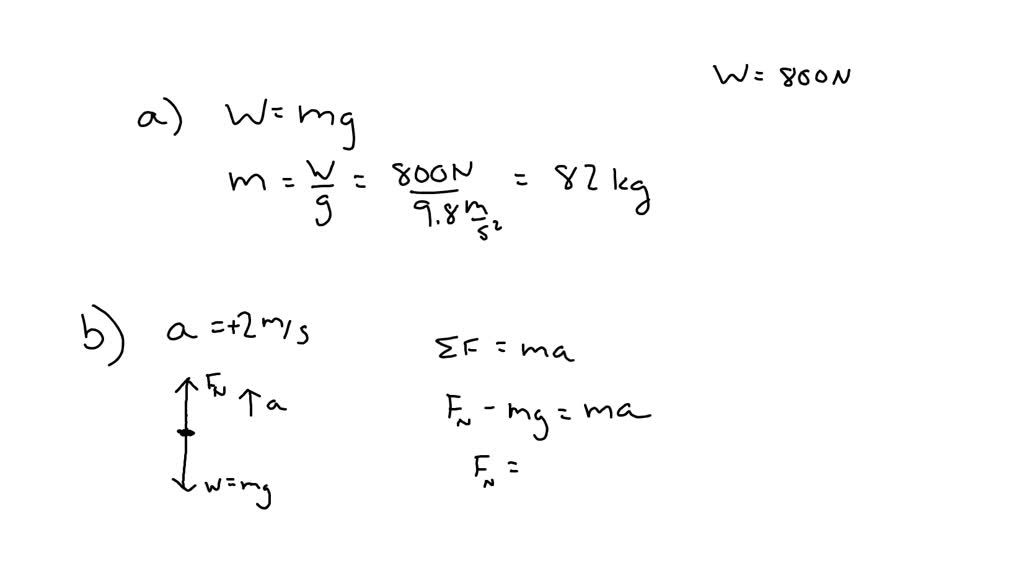 W = 800N
a) W = mg
m = W/g = 800N / 9.8 m/s² = 82 kg
b) a = +2 m/s
ΣF = ma
F_N ↑ a
F_N - mg = ma
F_N =
w = mg